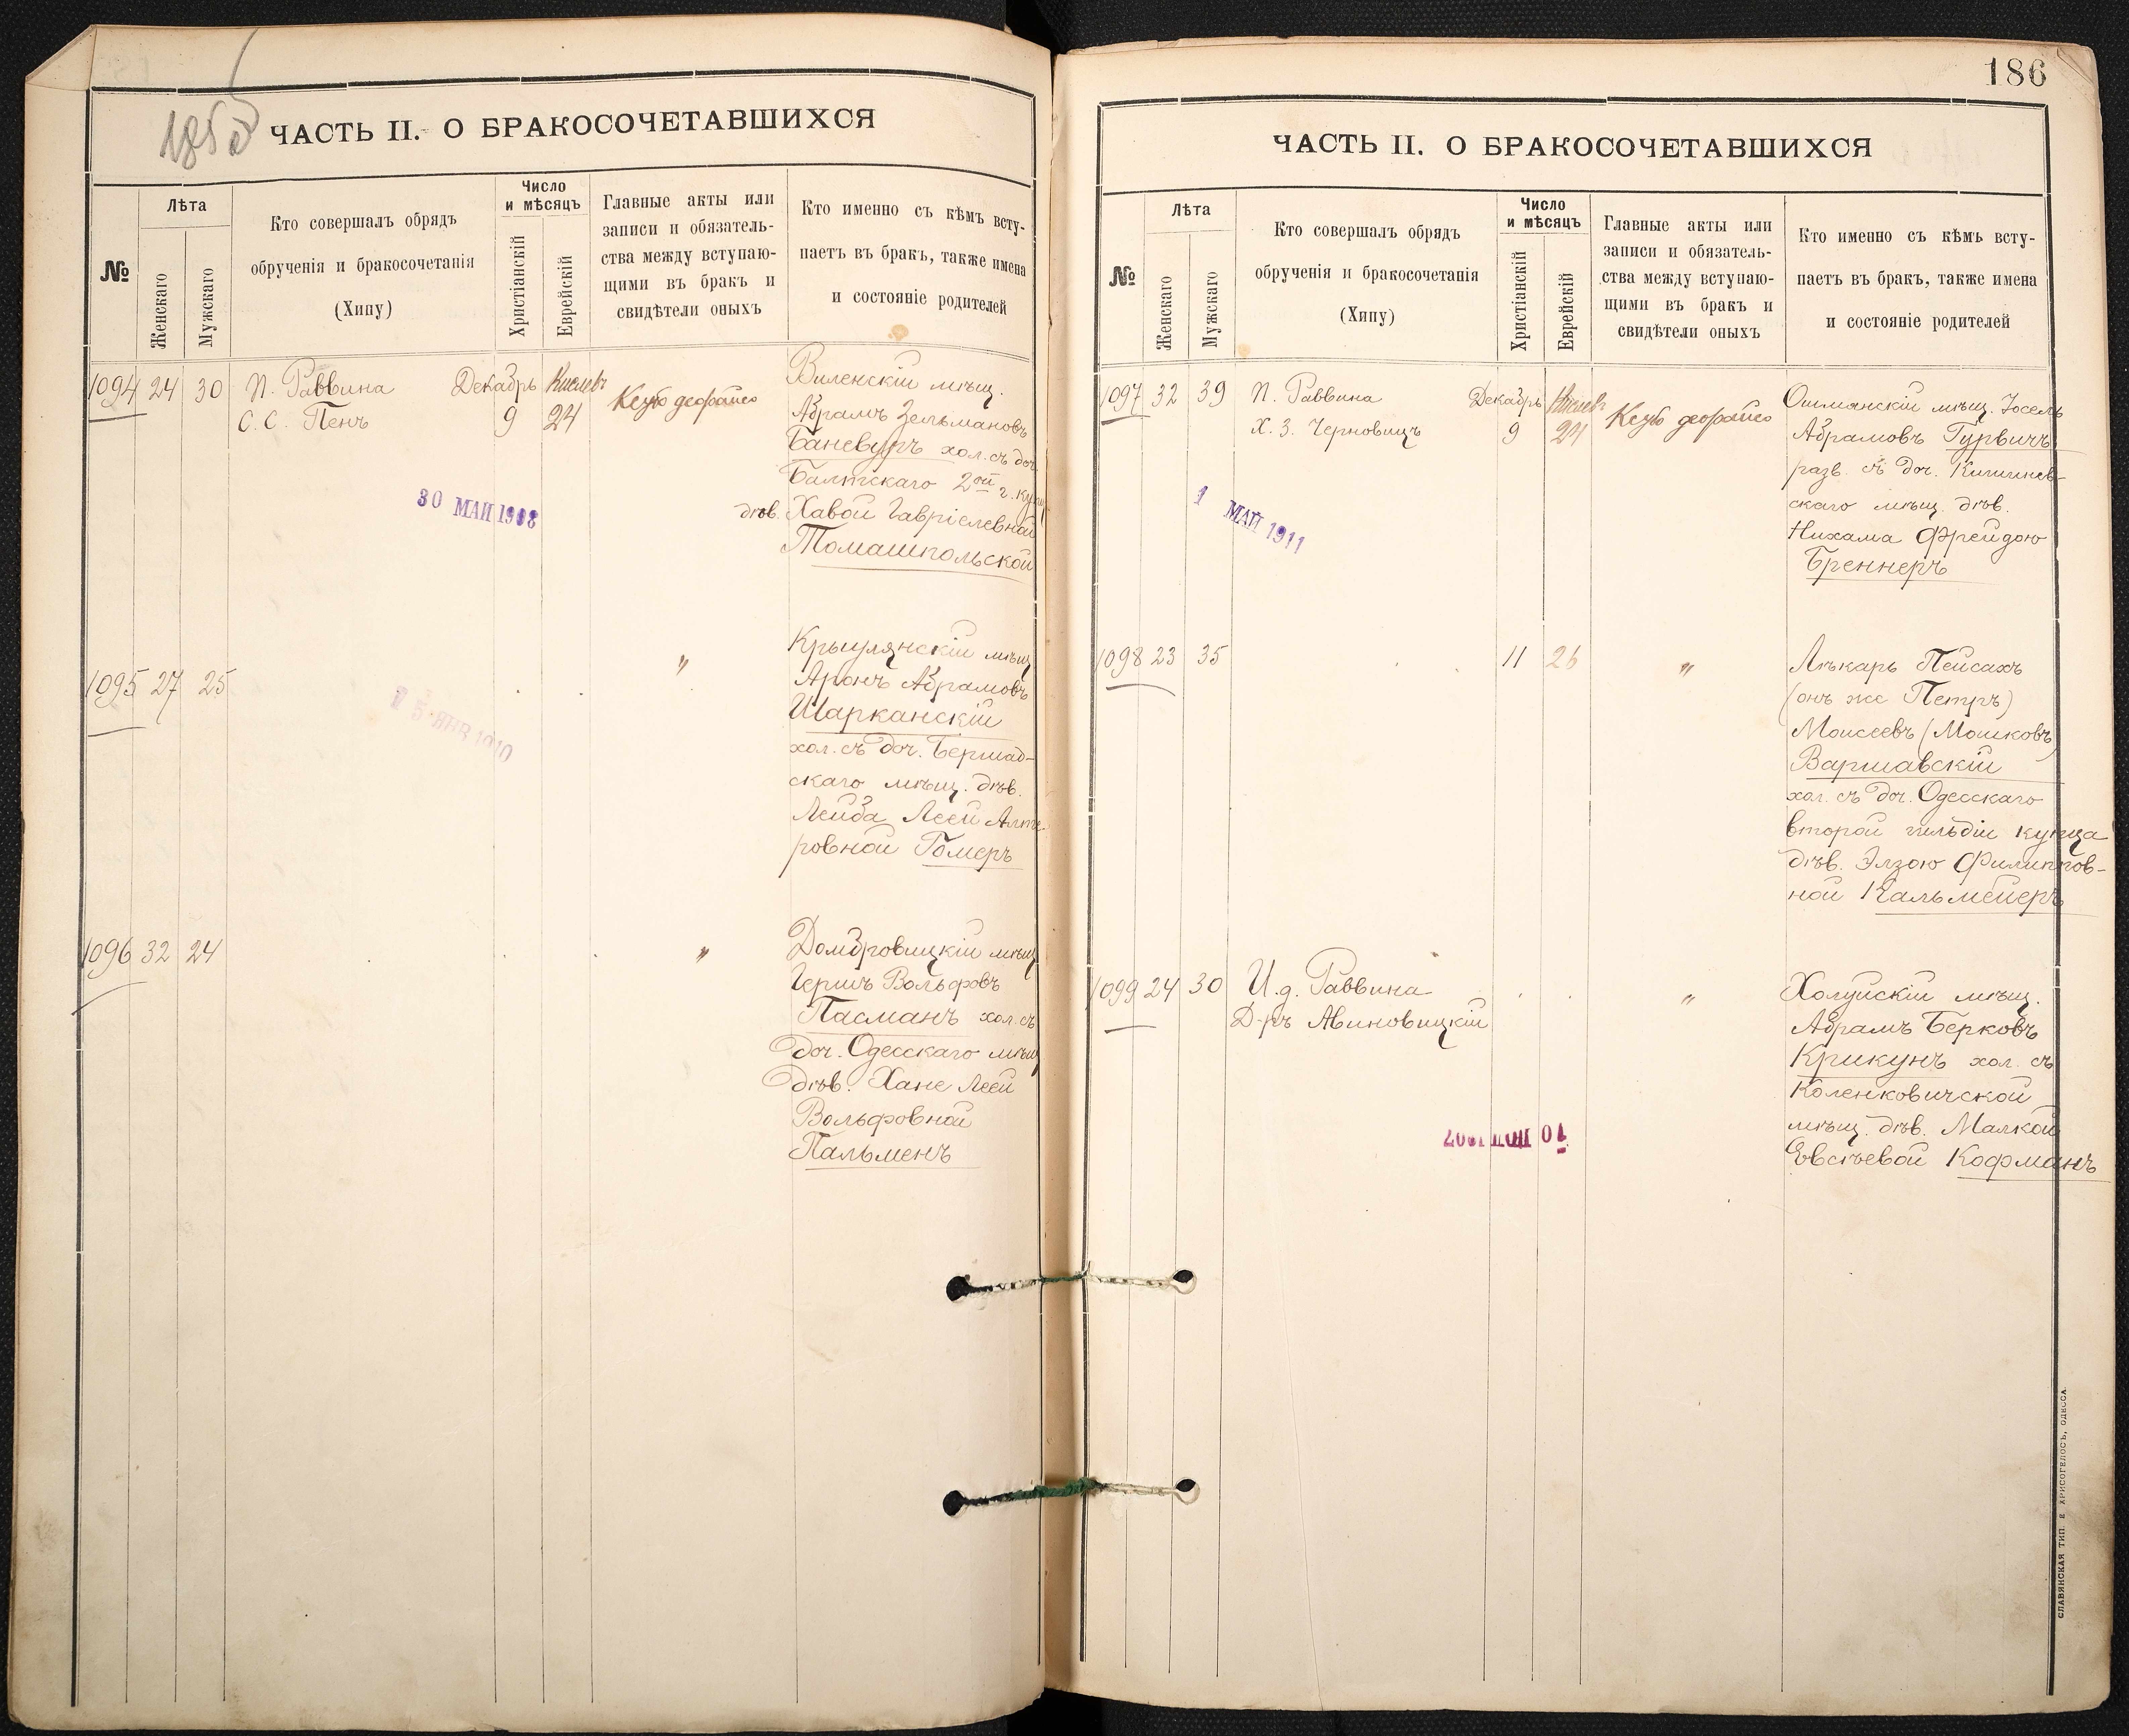 185
ЧАСТЬ II. О БРАКОСОЧЕТАВШИХСЯ
№
Лѣта
Женскаго
Мужскаго
Кто совершалъ обрядъ
обрученія и бракосочетанія
(Хипу)
Число
и мѣсяцъ
Христіанскій
Еврейскій
Главные акты или
записи и обязатель-
ства между вступаю-
щими въ бракъ и
свидѣтели оныхъ
Кто именно съ кѣмъ всту-
паетъ въ бракъ, также имена
и состояніе родителей
1094 24 30
П. Раввина
С. С. Пенъ
Декабрь
9
Кислевъ
24
Виленскій мѣщ.
Абрамъ Зельмановъ
Баневуръ хол. съ доч.
Балтскаго 2ой г. купц
дѣв. Хавой Гавріелевной
Томашпольской
30 МАЙ 1908
1095 27 25
"
Крыулянскій мѣщ
Аронъ Абрамовъ
Шарканскій
хол. съ доч. Бершад-
скаго мѣщ. дѣв.
Лейба Леей Альте-
ровной Гомеръ
1 5 ЯНВ 1910
1096 32 24
"
Домбровицкій мѣщ
Гершъ Вольфовъ
Пасманъ хол. съ
доч. Одесскаго мѣщ
дѣв. Хане Леей
Вольфовной
Пальменъ
186
ЧАСТЬ II. О БРАКОСОЧЕТАВШИХСЯ
№
Лѣта
Женскаго
Мужскаго
Кто совершалъ обрядъ
обрученія и бракосочетанія
(Хипу)
Число
и мѣсяцъ
Христіанскій
Еврейскій
Главные акты или
записи и обязатель-
ства между вступаю-
щими въ бракъ и
свидѣтели оныхъ
Кто именно съ кѣмъ всту-
паетъ въ бракъ, также имена
и состояніе родителей
1097 32 39
П. Раввина
Х. З. Черновицъ
Декабрь
9
Кислевъ
24
Ошмянскій мѣщ. Іосель
Абрамовъ Гурвичъ
разв. съ доч. Кишинев-
скаго мѣщ. дѣв.
Нихама Фрейдою
Бреннеръ
1 МАЙ 1911
1098 23 35
11 26
"
Лѣкарь Пейсахъ
(онъ же Петръ)
Моисеевъ (Мошковъ)
Варшавскій
хол. съ доч. Одесскаго
второй гильдіи купца
дѣв. Элзою Филиппов-
ной Кальмейеръ
1099 24 30
И. д. Раввина
Д-ръ Авиновицкій
"
Холуйскій мѣщ.
Абрамъ Берковъ
Крикунъ хол. съ
Коленковичской
мѣщ. дѣв. Малкой
Евсѣевой Кофманъ
СЛАВЯНСКАЯ ТИП. Е ХРИСОГЕЛОСЪ, ОДЕССА.